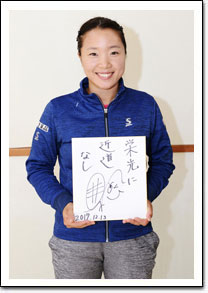 栄光に
近道
なし
2017.12.13
S